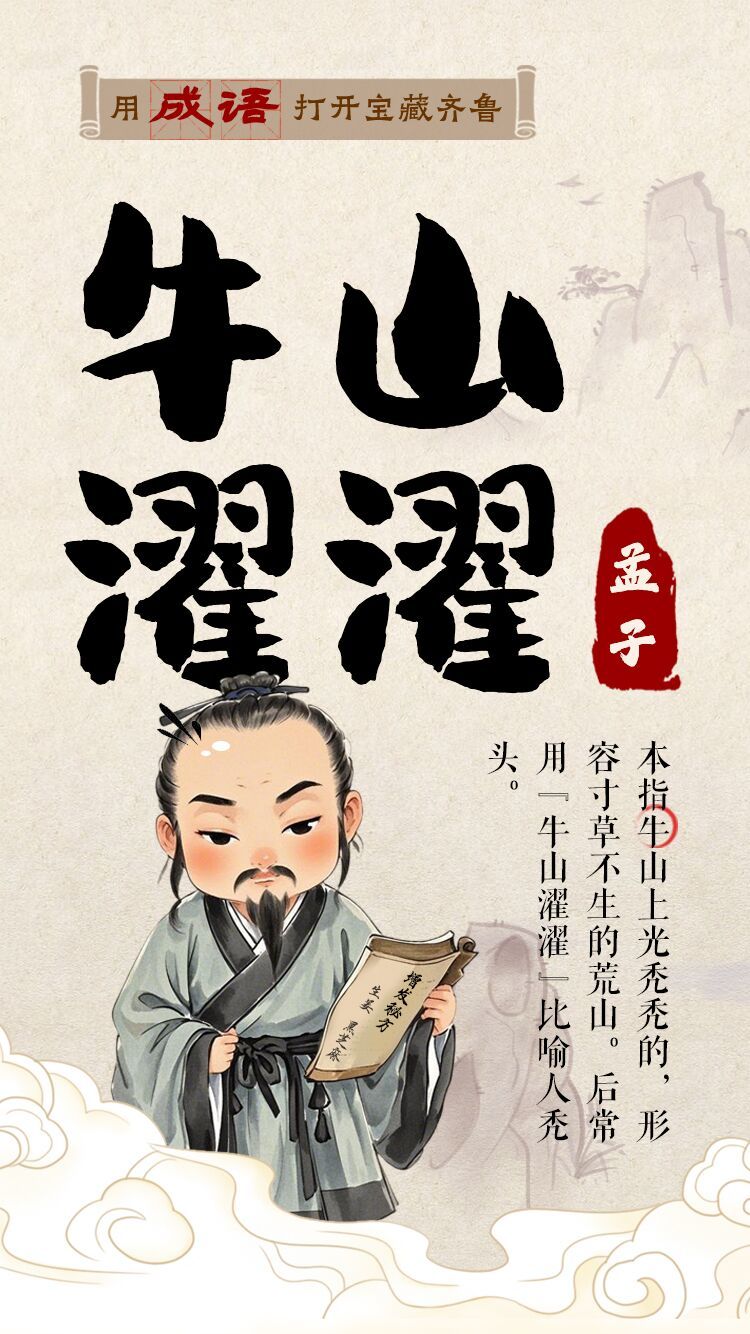 用成语打开宝藏齐鲁
牛山
濯濯
孟子
本指牛山上光秃秃的，形
容寸草不生的荒山。后常
用『牛山濯濯』比喻人秃
头。
增发秘方
生姜 黑芝麻